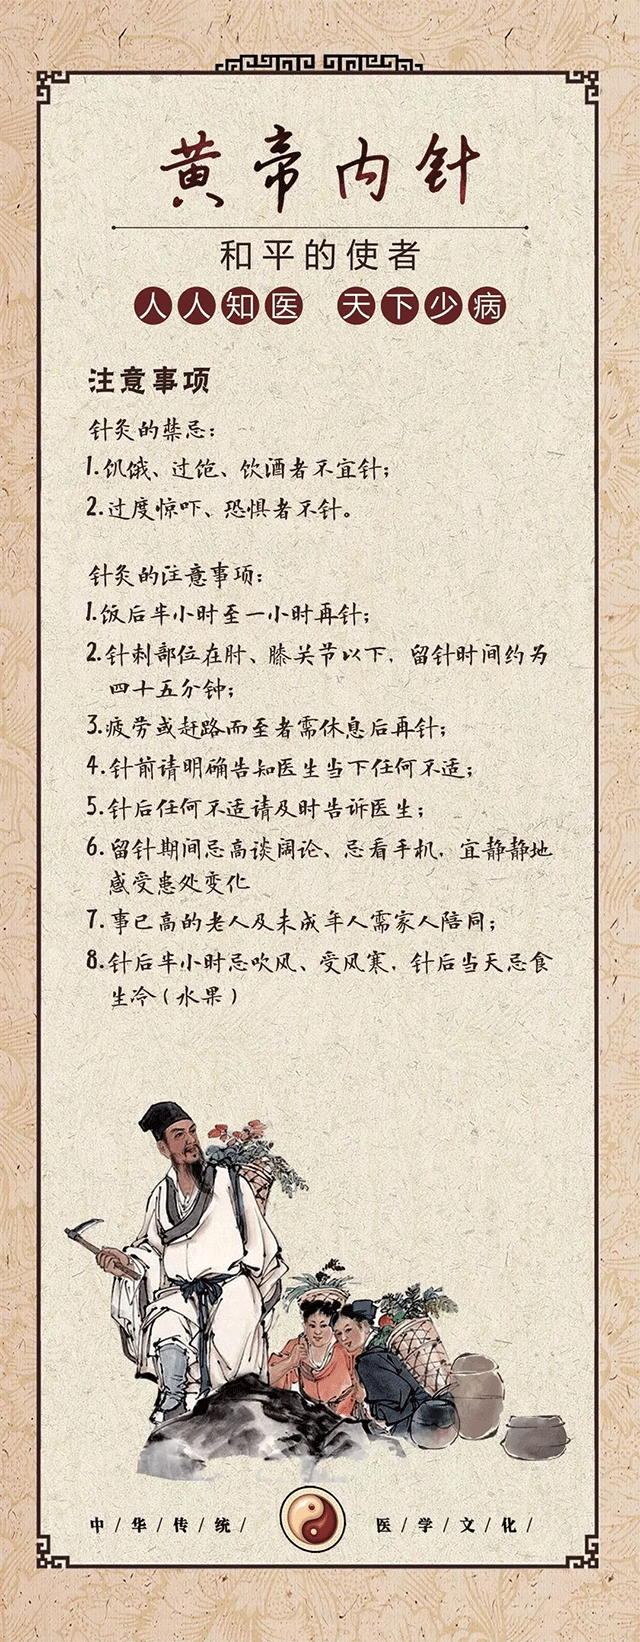 黄帝内针
和平的使者
人人知医 天下少病
注意事项
针灸的禁忌：
1.饥饿、过饱、饮酒者不宜针；
2.过度惊吓、恐惧者不针。
针灸的注意事项：
1.饭后半小时至一小时再针；
2.针刺部位在肘、膝关节以下，留针时间约为
四十五分钟；
3.疲劳或赶路而至者需休息后再针；
4.针前请明确告知医生当下任何不适；
5.针后任何不适请及时告诉医生；
6.留针期间忌高谈阔论、忌看手机，宜静静地
感受患处变化
7.事已高的老人及未成年人需家人陪同；
8.针后半小时忌吹风、受风寒，针后当天忌食
生冷（水果）
中/华/传/统/ 医/学/文/化/